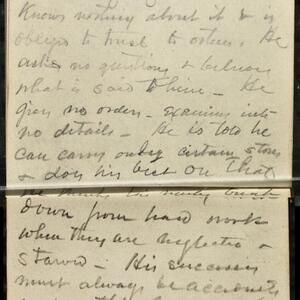 Knows nothing about it & is
obliged to trust to others. He
asks no questions & believes
what is said to him - He
gives no orders - examines into
no details - He is told he
can carry only certain stores
& does his best on that
he thinks the
down from hard work
when they are neglected &
starved - His successes
must always be accidents